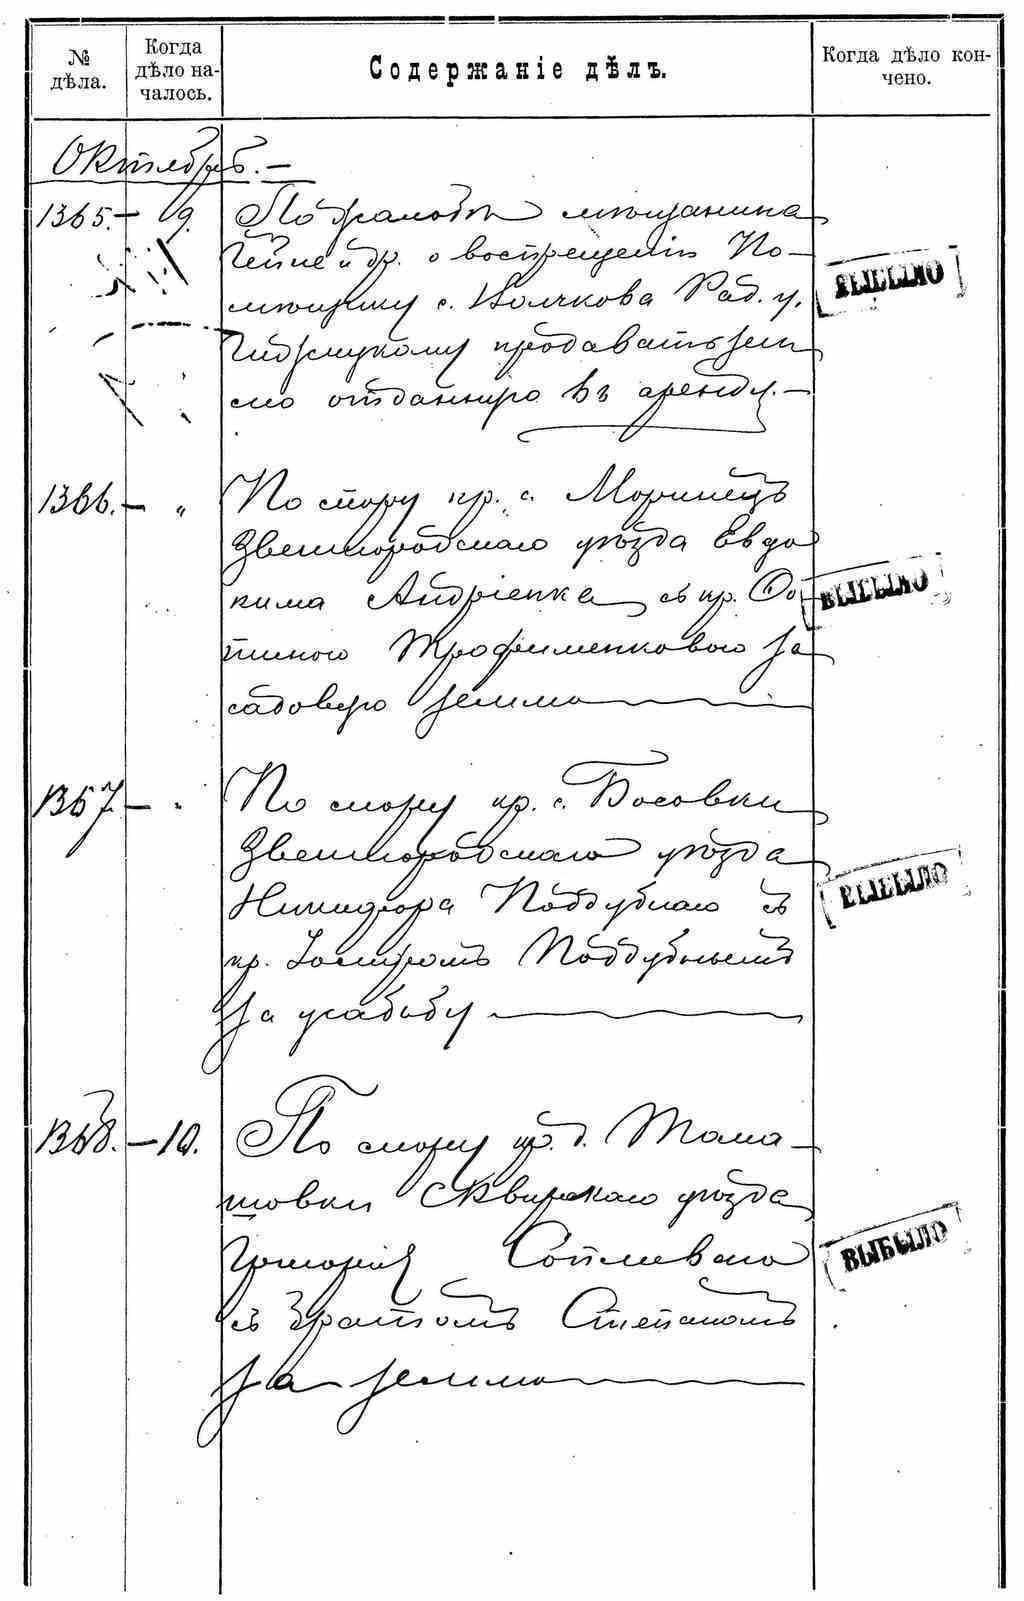 № дѣла.
Когда дѣло на-
чалось.
Содержаніе дѣлъ.
Когда дѣло кон-
чено.
Октябрь. —
1365. — 9. По жалобѣ мѣщанина
и др. о воспрещеніи По-
мѣщику с. Волчкова Рад. у.
продавать зем
лю отданную въ аренду. —
ВЫБЫЛО
1366. — „ По спору кр. с. Моринецъ
Звенигородскаго уѣзда Евдо
кима Андріенка съ кр.
Трофименковою за
садовую землю
ВЫБЫЛО
1367. — „ По спору кр. с. Босовки
Звенигородскаго уѣзда
Никифора Поддубнаго съ
кр. Поддубнымъ
за усадьбу
ВЫБЫЛО
1368. — 10. По спору кр. д. Тома-
шовки Сквирскаго уѣзда
Григорія
съ братомъ Степаномъ
за землю
ВЫБЫЛО